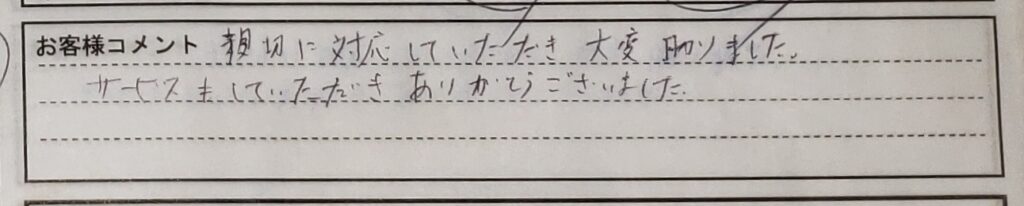 お客様コメント 親切に対応していただき 大変助りました。
サービスまでしていただき ありがとうございました。